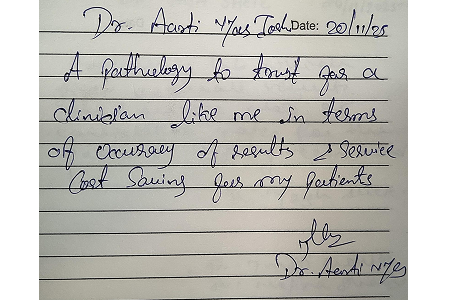 Dr. Aarti Vyas Joshi Date: 20/11/25
A pathology to trust for a
clinician like me in terms
of accuracy of results & service
Cost Saving for my patients
Dr. Aarti Vyas